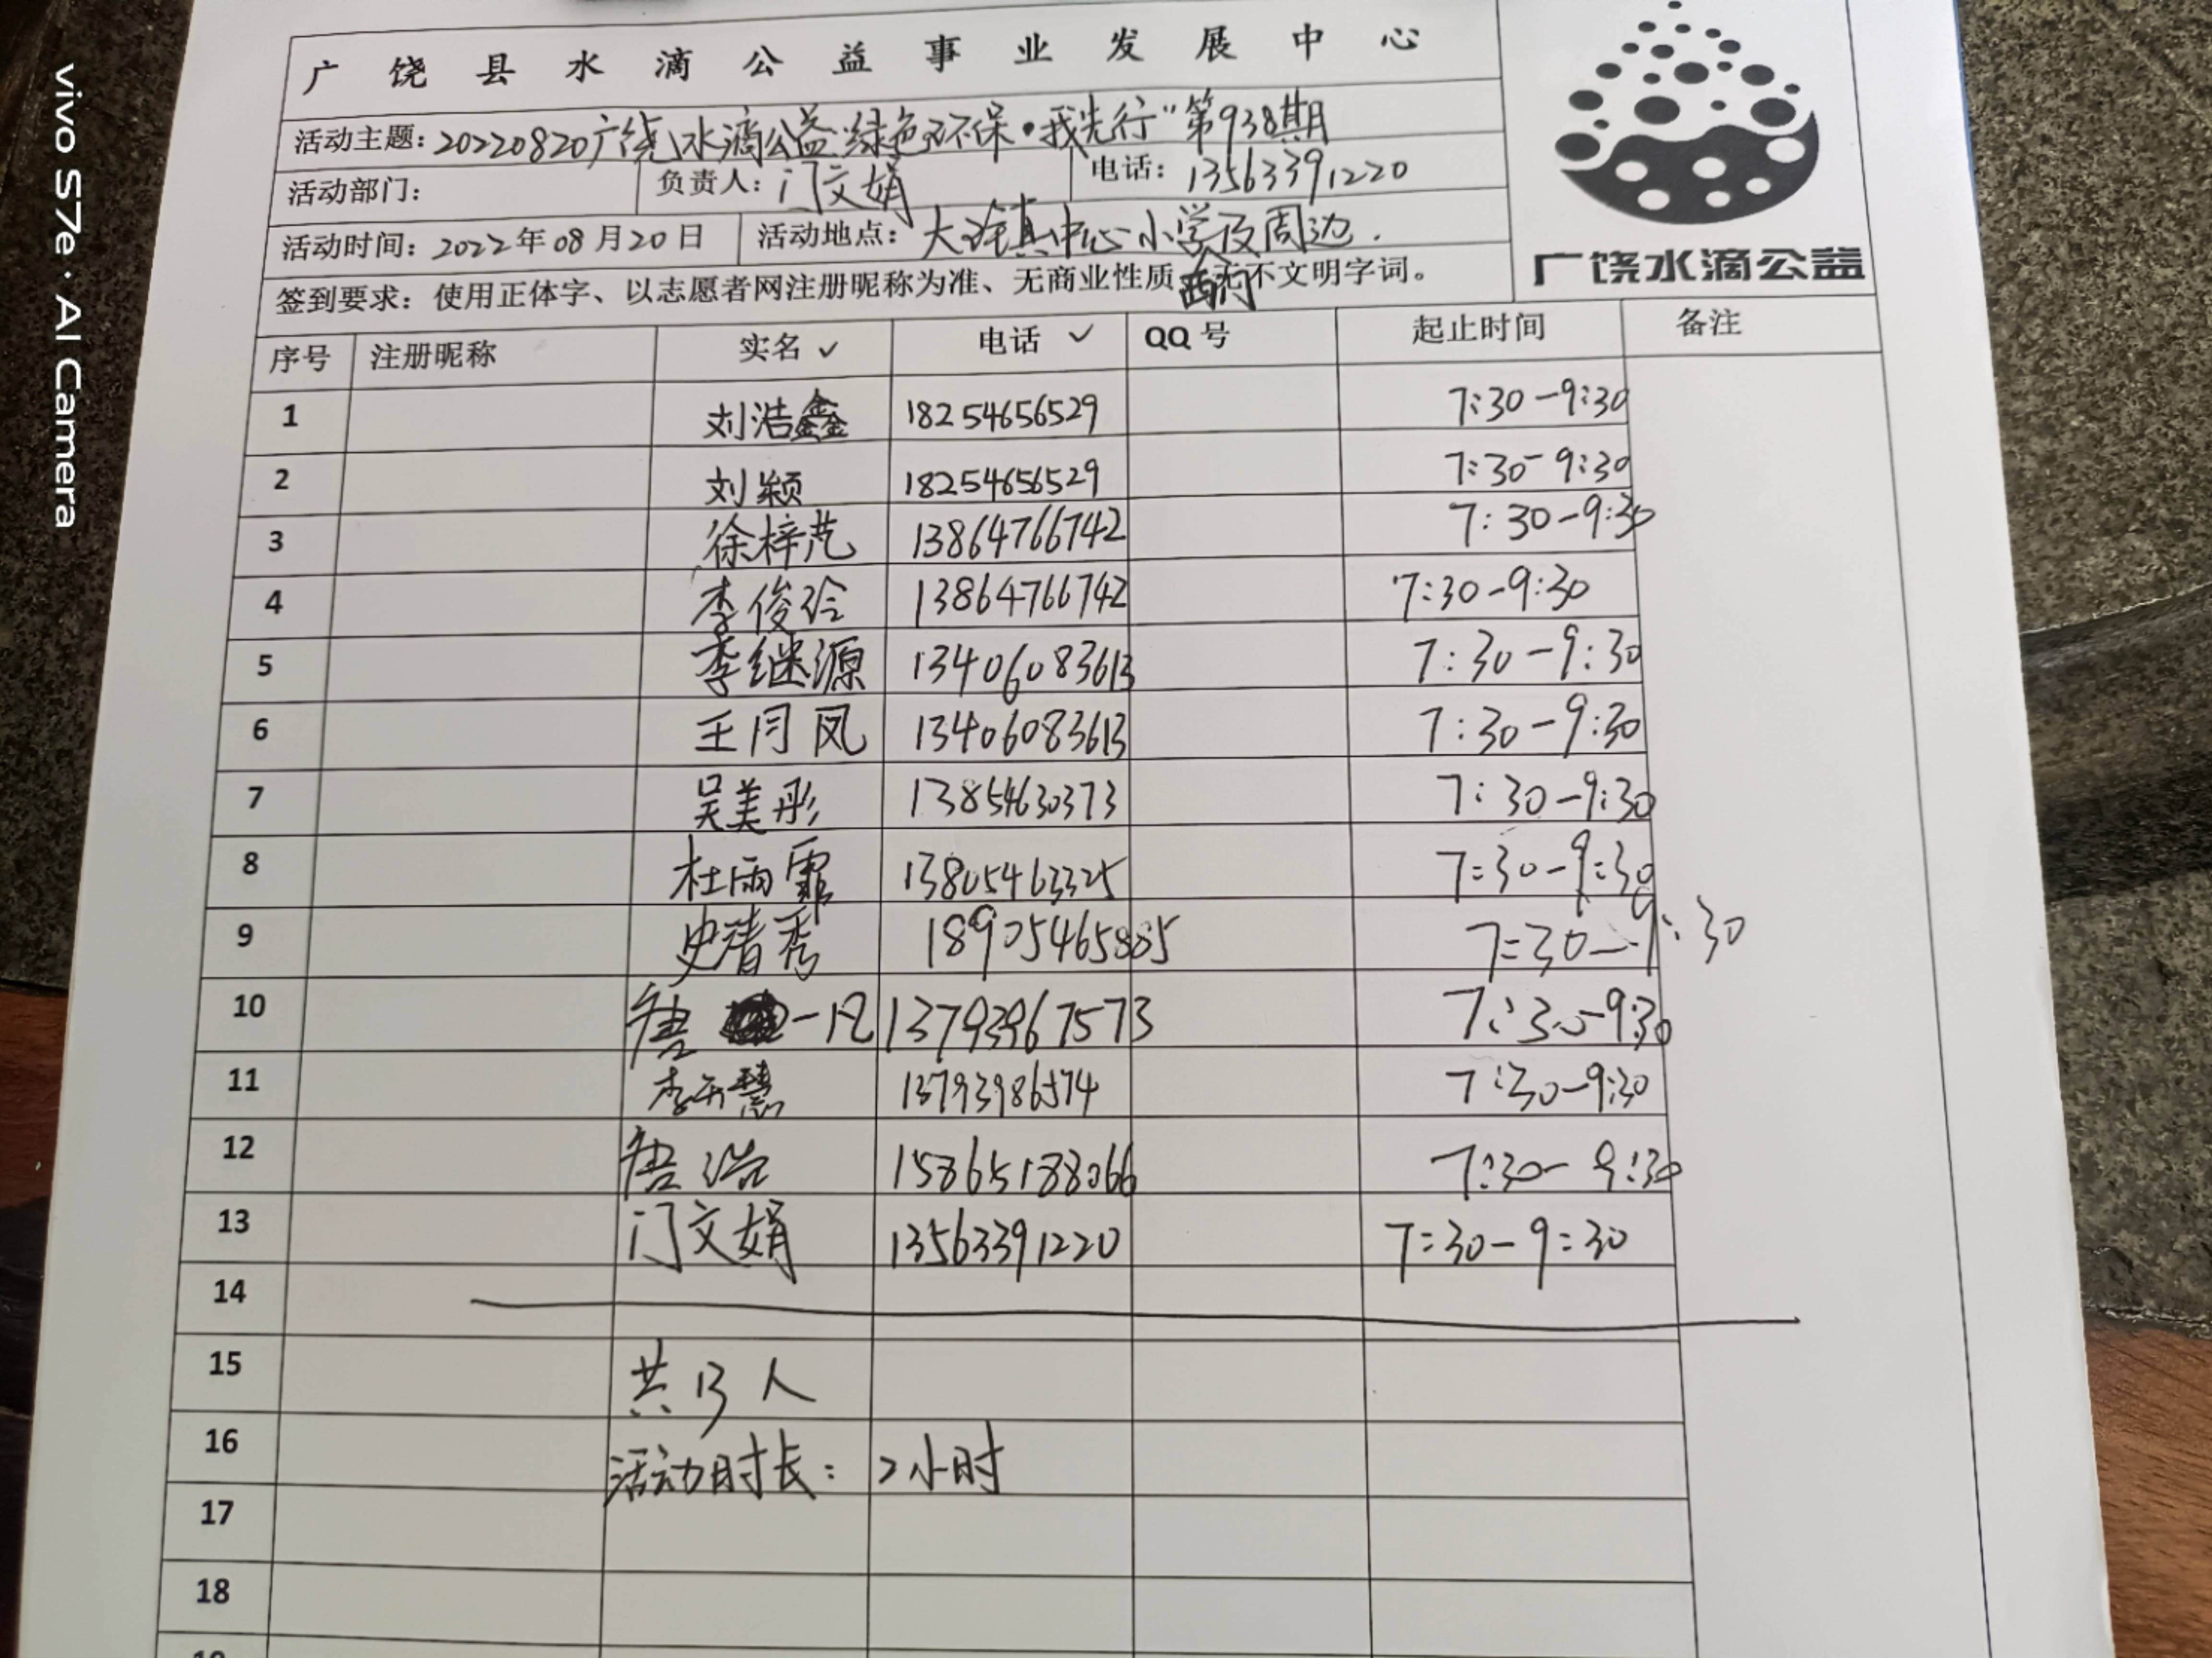 广饶县水滴公益事业发展中心
活动主题：20220820广饶水滴公益"绿色环保·我先行"第938期
活动部门： 负责人：门文娟 电话：13563391220
活动时间：2022年08月20日 活动地点：大注镇中心小学及周边.
签到要求：使用正体字、以志愿者网注册昵称为准、无商业性质 无不文明字词。
广饶水滴公益
序号 注册昵称 实名 ✓ 电话 ✓ QQ号 起止时间 备注
1 刘浩鑫 18254656529 7:30-9:30
2 刘颖 18254656529 7:30-9:30
3 徐梓范 13864766742 7:30-9:30
4 李俊玲 13864766742 7:30-9:30
5 李继源 13406083613 7:30-9:30
6 王月凤 13406083613 7:30-9:30
7 吴美彤 13854630373 7:30-9:30
8 杜雨霏 13805463325 7:30-9:30
9 史清秀 18905465885 7:30-9:30
10 唐一凡 13793967573 7:30-9:30
11 李 慧 13793986574 7:30-9:30
12 唐浩 15865188066 7:30-9:30
13 门文娟 13563391220 7:30-9:30
14
15 共13人
16 活动时长：2小时
17
18
19
vivo S7e · AI Camera